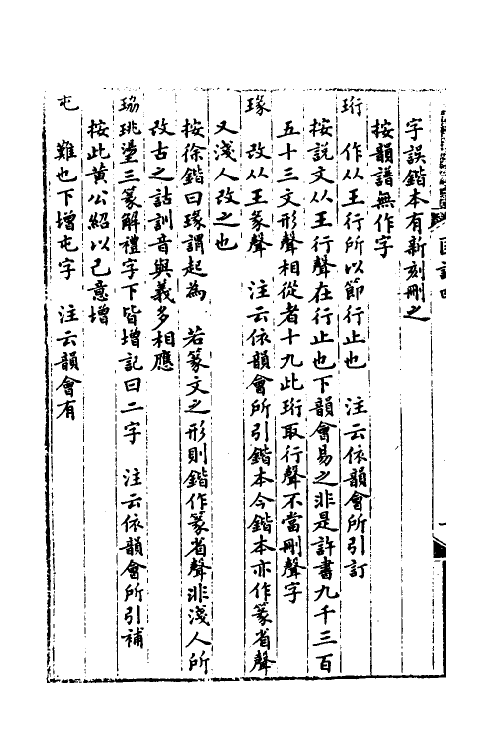 字誤鍇本有新刻刪之
按韻譜無作字
珩　作从王行所以節行止也　注云依韻會所引訂
按説文从王行聲在行止也下韻會易之非是許書九千三百
五十三文形聲相從者十九此珩取行聲不當刪聲字
瑑　改从王篆聲　注云依韻會所引鍇本今鍇本亦作篆省聲
又淺人改之也
按徐鍇曰瑑謂起為　若篆文之形則鍇作篆省聲非淺人所
改古之詁訓音與義多相應
珕珧璗三篆解禮字下皆增記曰二字　注云依韻會所引補
按此黄公紹以己意增
屯　難也下增屯字　注云韻會有